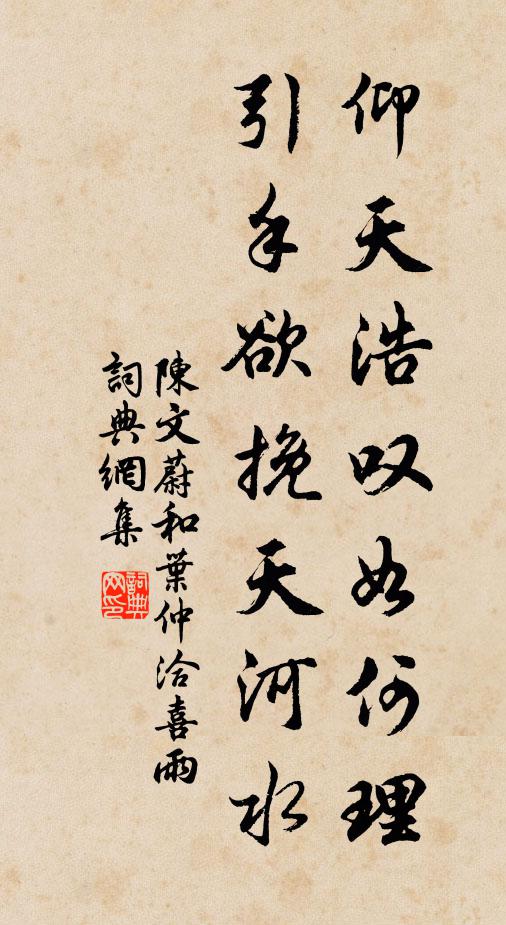 仰天浩叹如何理
引手欲挽天河水
陳文蔚和葉仲洽喜雨
詞典網集
詞典网印